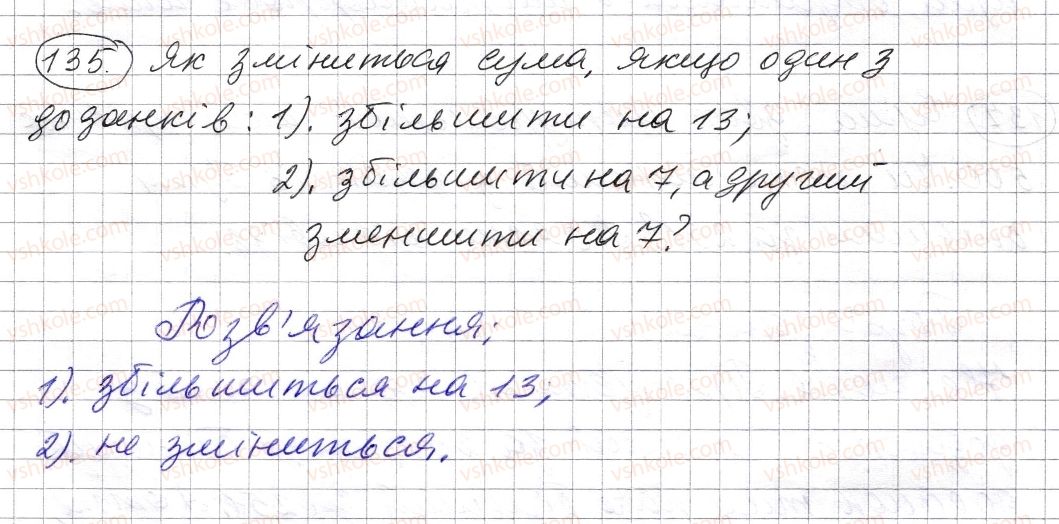 135. Як зміниться сума, якщо один з
доданків: 1). збільшити на 13;
2). збільшити на 7, а другий
зменшити на 7?
Розв'язання;
1). збільшиться на 13;
2). не зміниться.